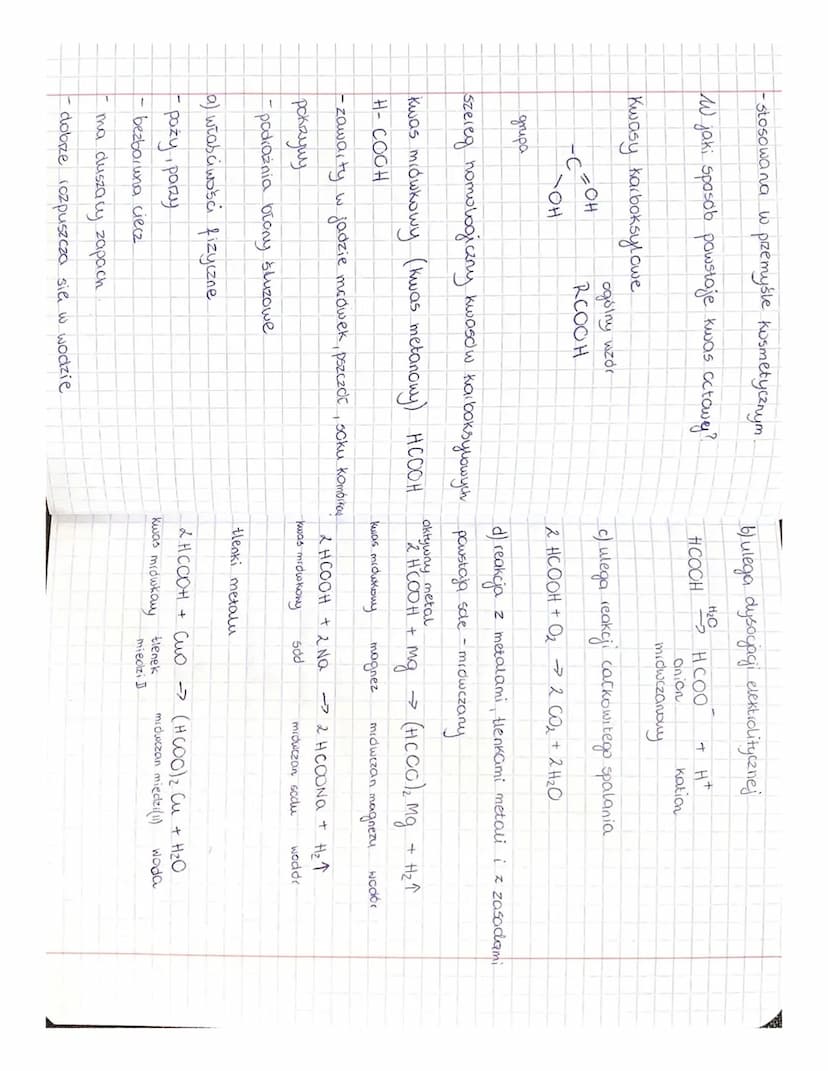 - stosowana w przemyśle kosmetycznym
W jaki sposób powstaje kwas octowy?
Kwasy karboksylowe
ogólny wzór
-C=OH
\OH
RCOOH
grupa
szereg homologiczny kwasów karboksylowych
kwas mrówkowy (kwas metanowy) HCOOH
H-COOH
- zawarty w jadzie mrówek, pszczół, soku
pokrzywy
- podrażnia błony śluzowe
a) właściwości fizyczne
- parzy
- bezbarwna ciecz
- ma duszący zapach
- dobrze rozpuszcza się w wodzie
b) ulega dysocjacji elektrolitycznej
HCOOH H2O→ HCOO⁻ + H⁺
anion kation
mrówczanowy
c) ulega reakcji całkowitego spalania
2 HCOOH + O2 → 2 CO2 + 2H2O
d) reakcja z metalami, tlenkami metali i z zasadami
powstają sole - mrówczany
aktywny metal
2 HCOOH + Mg → (HCOO)2 Mg + H2↑
kwas mrówkowy magnez mrówczan magnezu wodór
2 HCOOH + 2 Na → 2 HCOONa + H2↑
kwas mrówkowy sód mrówczan sodu wodór
tlenki metalu
2 HCOOH + CuO → (HCOO)2 Cu + H2O
kwas mrówkowy tlenek mrówczan miedzi(II) woda
miedzi II